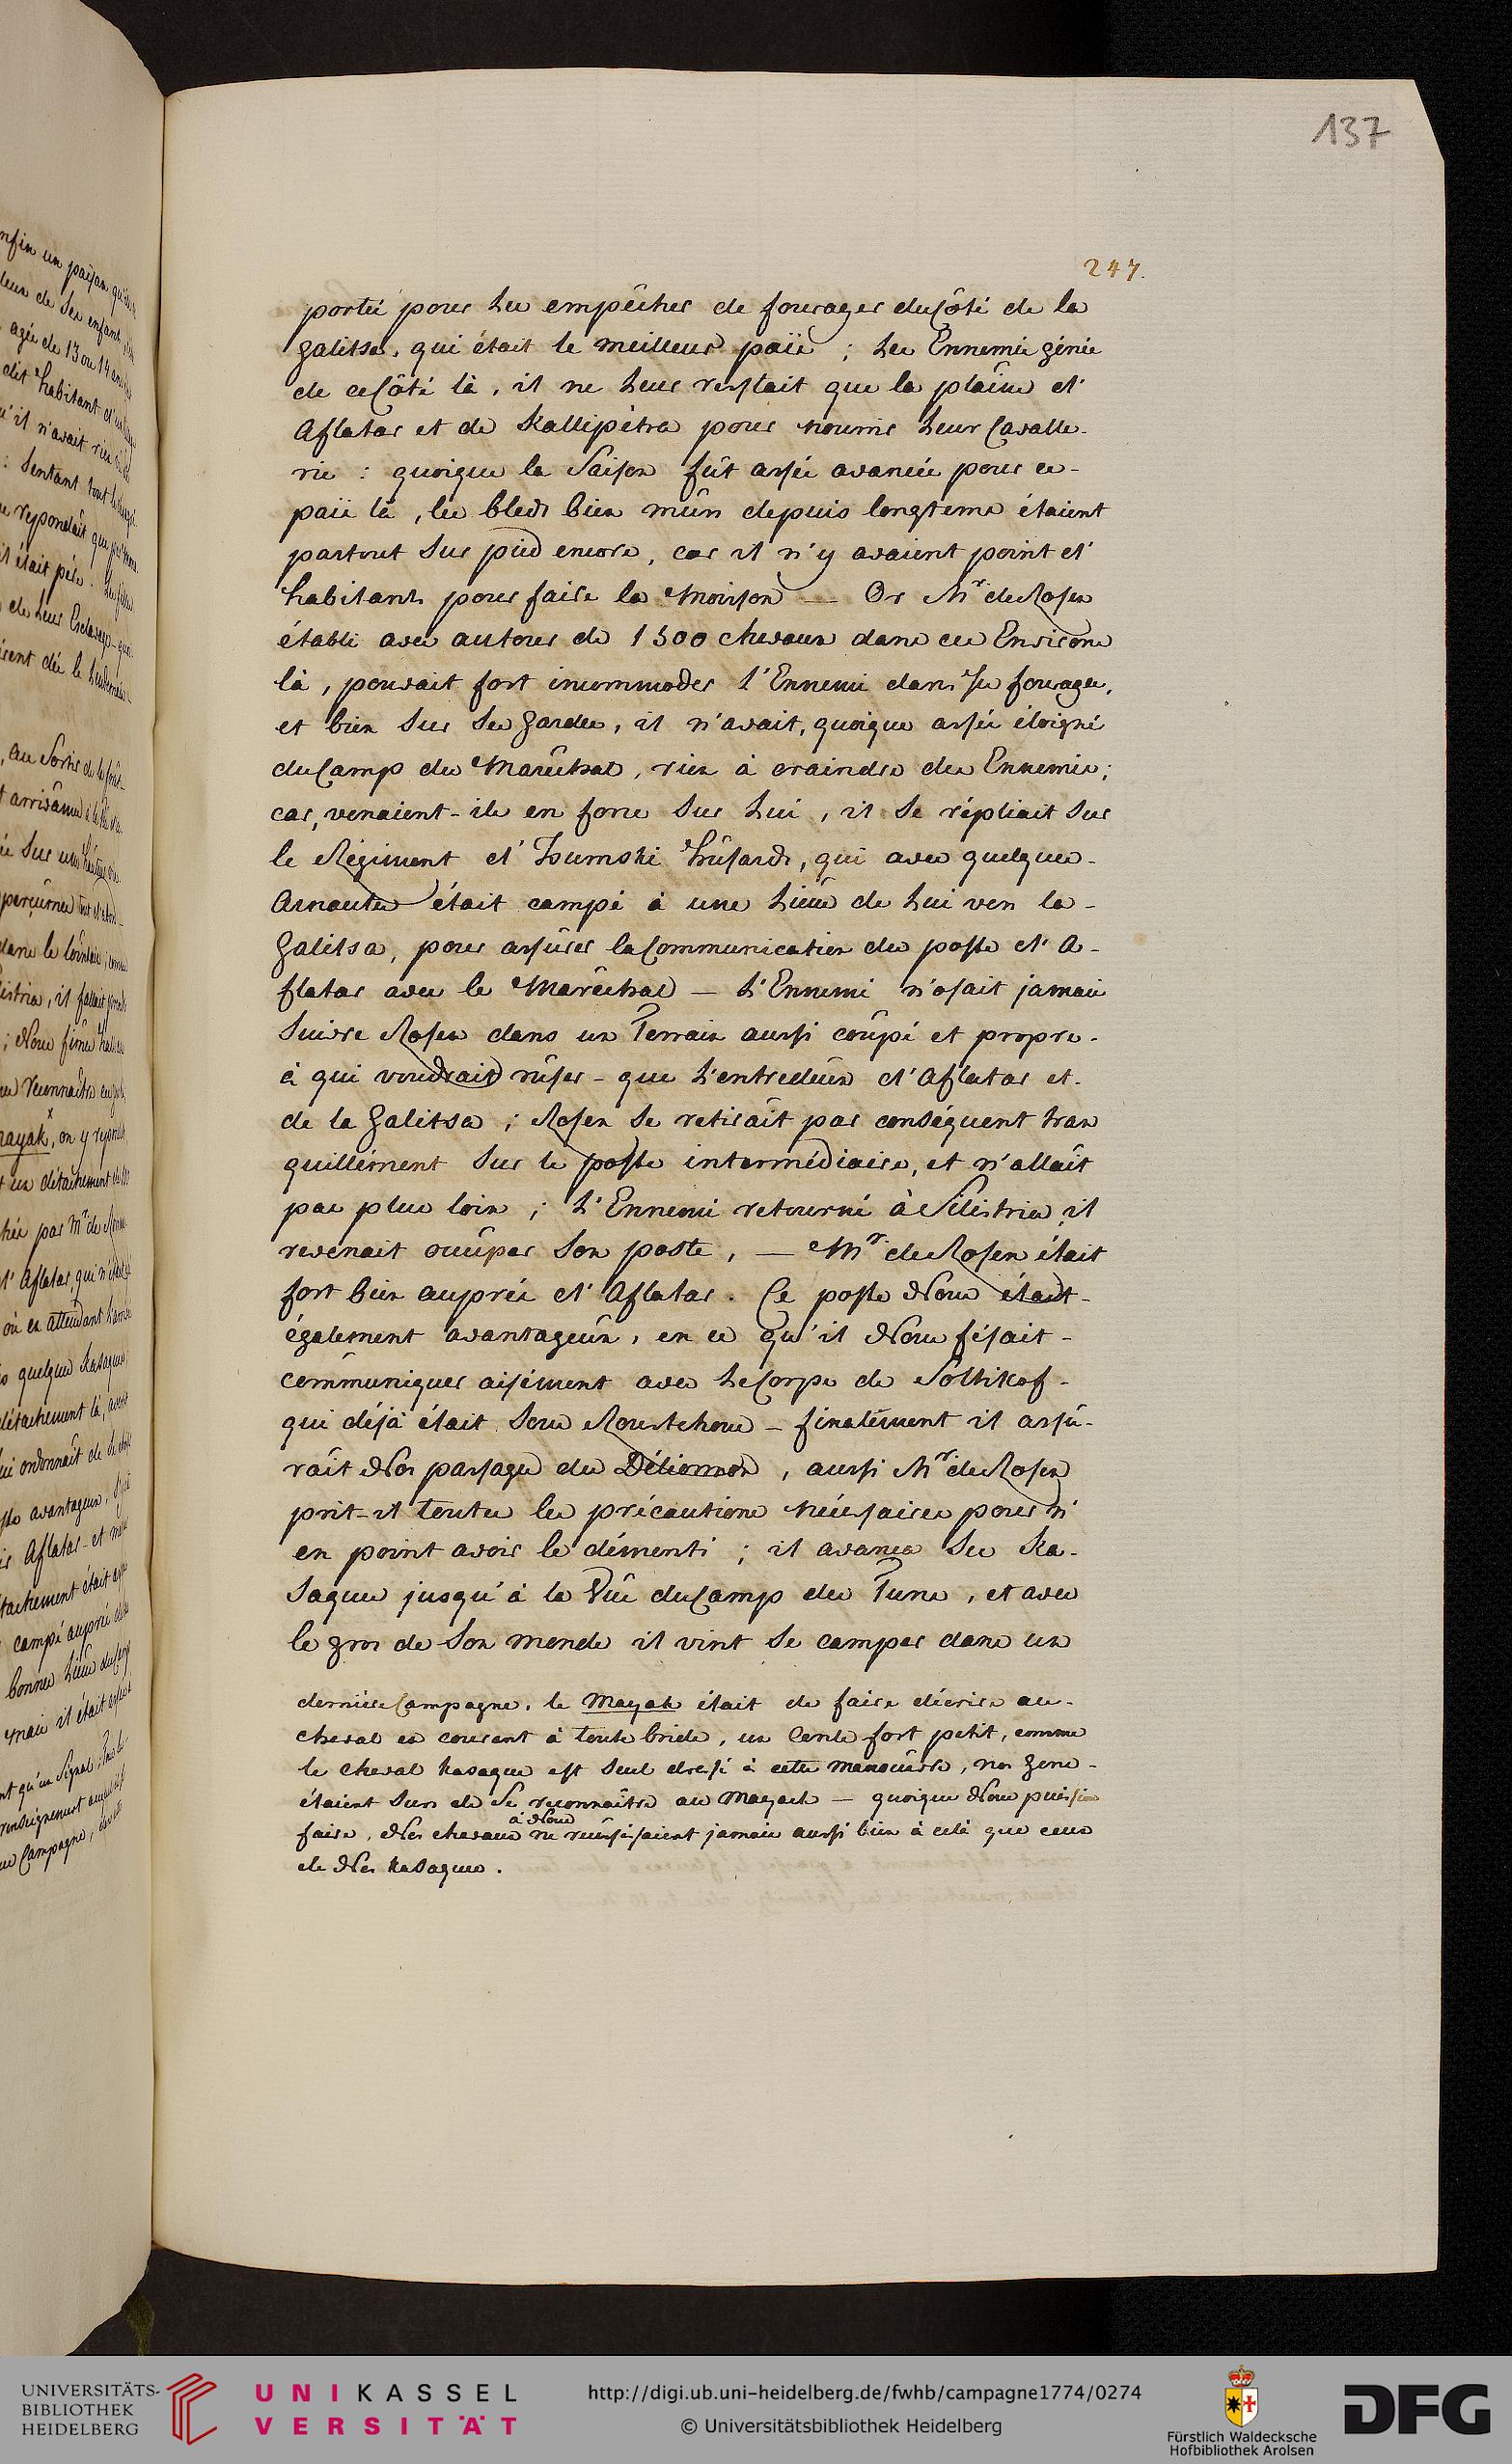 137
247.
portée pour Les empêcher de fourager du Côté de la
Galitsa, qui était le meilleur païs ; Les Ennemis génés
de ce Côté là, il ne Leur restait que la plaine d'
Aflatar et de Kallipétra pour nourrir Leur Cavalle-
rie : quoique la Saison fût assés avancée pour ce-
païs là, les bleds bien mûrs depuis longtems étaient
partout Sur pied encore, car il n'y avaient point d'
habitants pour faire la Moisson — Or Mr de Rosen
établi avec autour de 1500 chevaux dans ces Environs
là, pouvait fort incommoder l'Ennemi dans Ses fourages,
et bien Sur Ses Gardes, il n'avait, quoique assés éloigné
du Camp du Maréchal, rien à craindre des Ennemis ;
car, venaient-ils en force Sur Lui, il Se répliait Sur
le Régiment d'Isumski Húsards, qui avec quelques-
Arnautes était campé à une Lieuë de Lui vers la-
Galitsa, pour assûrer la Communication du poste d'A-
flatar avec le Maréchal — L'Ennemi n'osait jamais
Suivre Rosen dans un Terrain aussi coûpé et propre-
à qui voudrait rûser - que L'entredeûx d'Aflatar et-
de la Galitsa ; Rosen Se retirait par conséquent tran
quillément Sur le poste intermédiaire, et n'allait
pas plus loin ; L'Ennemi retourné à Silistria, il
revenait occûper Son poste, — Mr de Rosen était
fort bien auprés d'Aflatar. Ce poste Nous était-
également avantageûx, en ce qu'il Nous fésait-
communiquer aisément avec Le Corps de Soltikof-
qui déjà était Sous Roustchouc - finalément il assû-
rait Nos passages du Déliorman, aussi Mr de Rosen
prit-il toutes les précautions nécessaires pour n'
en point avoir le démenti ; il avança Ses Ka-
saques jusqu'à la Vûe du Camp des Turcs, et avec
le gros de Son monde il vint Se camper dans un
dernière Campagne, le Mayak était de faire décrire au-
cheval en courant à toute bride, un Cercle fort petit, comme
le cheval kasaque est Seul dressé à cette manoeuvre, nos Gens-
étaient Surs de Se reconnaître au Mayack — quoique Nous puissions
à Nous
faire, Nos chevaux ne réussissaient jamais aussi bien à celà que ceux
de Nos kasaques.
UNIVERSITÄTS-
BIBLIOTHEK
HEIDELBERG
UNIKASSEL
VERSITÄT
http://digi.ub.uni-heidelberg.de/fwhb/campagne1774/0274
© Universitätsbibliothek Heidelberg
Fürstlich Waldecksche
Hofbibliothek Arolsen
DFG